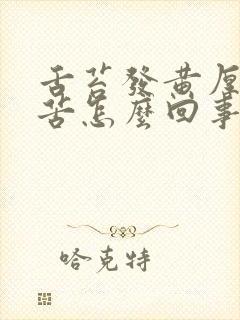 舌苔發黃厚
苦怎麼回事
哈克特